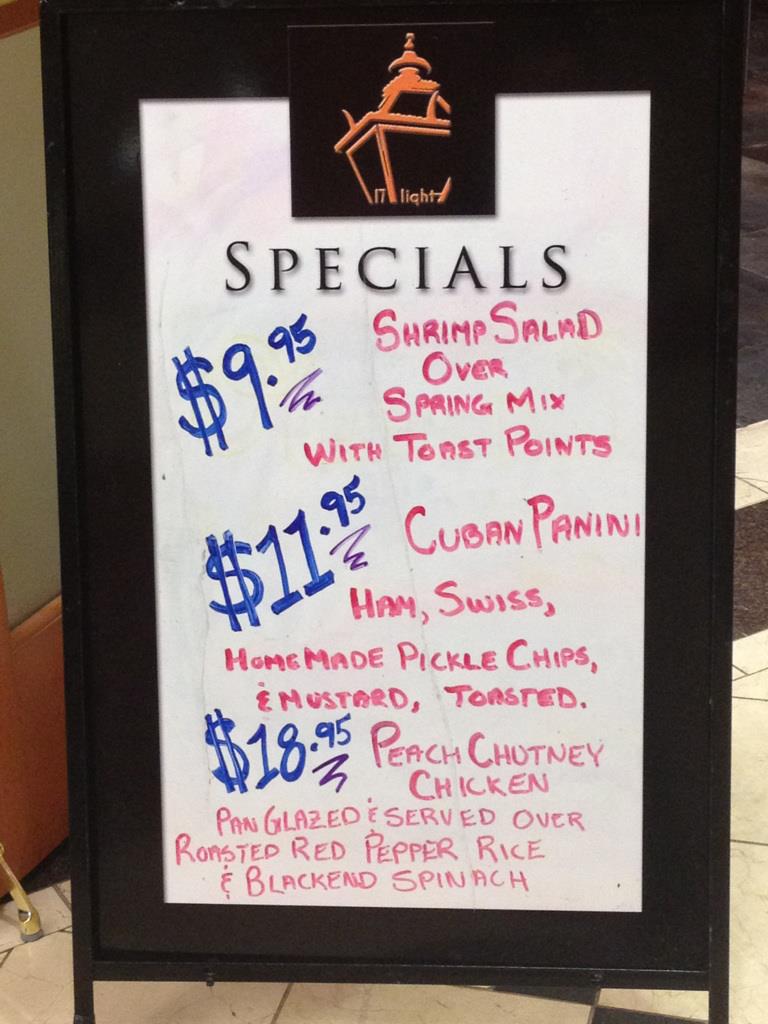 17 light
SPECIALS
$9.95
SHRIMP SALAD
OVER
SPRING MIX
WITH TOAST POINTS
$11.95
CUBAN PANINI
HAM, SWISS,
HOMEMADE PICKLE CHIPS,
& MUSTARD, TOASTED.
$18.95
PEACH CHUTNEY
CHICKEN
PAN GLAZED & SERVED OVER
ROASTED RED PEPPER RICE
& BLACKEND SPINACH